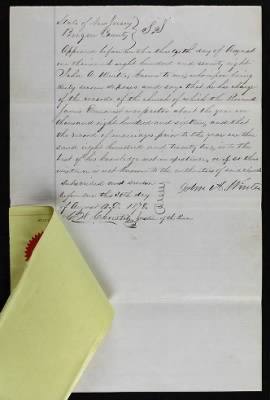 State of New Jersey
Bergen County } SS
Appeared before me this thirtieth day of August
one thousand eight hundred and seventy eight
John A. Winter known to me, who upon being
duly sworn deposes and says that he has charge
of the records of the church of which the Revend
James was pastor about the year one
thousand eight hundred and sixteen, and that
the record of marriages prior to the year one thou
sand eight hundred and twenty two, is to the
best of his knowledge not in existence, or if in
existence, is not known to the authorities of said church
Subscribed and sworn
before me this 30th day
of August A.D. 1878.
John A. Winter
Justice of the Peace